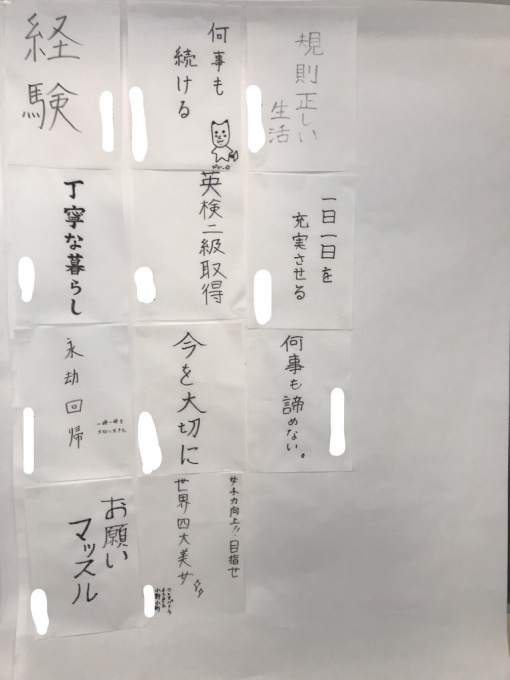 規則正しい
生活
何事も
続ける
経験
一日一日を
充実させる
英検二級取得
丁寧な暮らし
何事も諦めない。
今を大切に
永劫回帰
サチカ向上!!目指せ
世界四大美女
お願い
マッスル